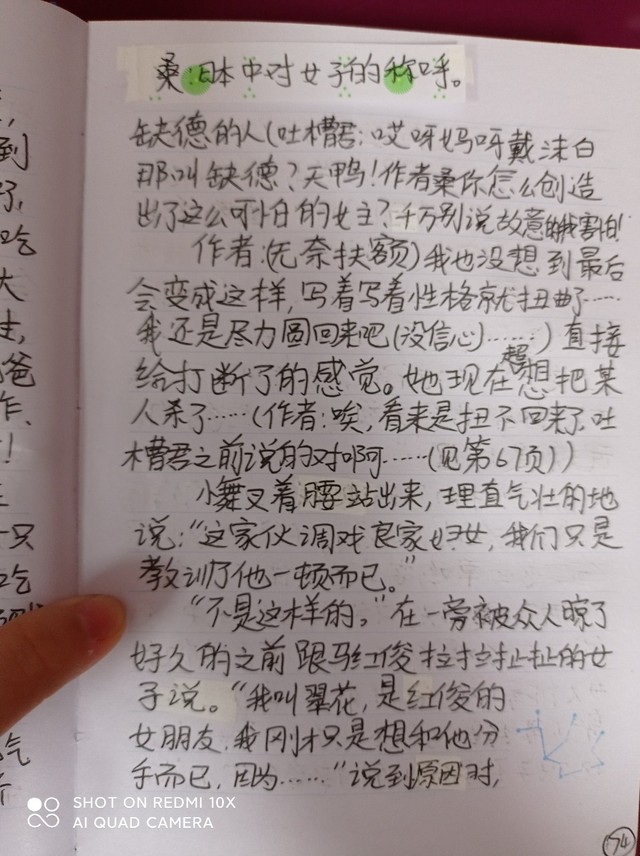 桑:日本中对女子的称呼。
缺德的人(吐槽君:哎呀妈呀戴沐白
那叫缺德?天鸭!作者桑你怎么创造
出了这么可怕的女主?千万别说故意的我害怕!
作者:(无奈扶额)我也没想到最后
会变成这样,写着写着性格就扭曲了……
我还是尽力圆回来吧(没信心)……)直接
给打断了的感觉。她现在超想把某
人杀了……(作者:唉,看来是扭不回来了.吐
槽君之前说的对啊……(见第67页))
小舞叉着腰站出来,理直气壮的地
说:“这家伙调戏良家妇女,我们只是
教训了他一顿而已。”
“不是这样的。”在一旁被众人晾了
好久的之前跟马红俊拉拉扯扯的女
子说。“我叫翠花,是红俊的
女朋友,我刚才只是想和他分
手而已,因为……”说到原因时,
74
到
吃
大
爸
只
吃
气
SHOT ON REDMI 10X
AI QUAD CAMERA